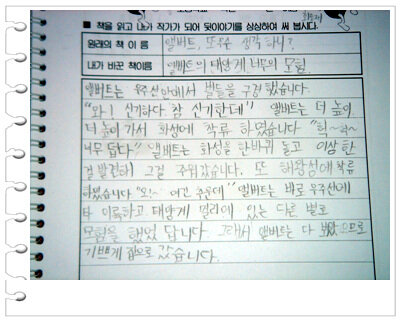 ■ 책을 읽고 내가 작가가 되어 뒷이야기를 상상하여 써 봅시다.
원래의 책 이름 앨버트, 또 무슨 생각하니?
내가 바꾼 책이름 앨버트의 태양계 너머의 모험
앨버트는 우주선 안에서 별들을 구경했습니다.
"와! 신기하다. 참 신기한데" 앨버트는 더 높이,
더 높이 가서 화성에 착륙 하였습니다 "헉~헉~
너무 덥다" 앨버트는 화성을 한바퀴 돌고 이상한
걸 발견해 그걸 주워갔습니다. 또 해왕성에 착륙
하였습니다 "오!~ 여긴 추운데" 앨버트는 바로 우주선에
타 이륙하고 태양계 멀리에 있는 다른 별로
모험을 했었 답니다. 그래서 앨버트는 다 보았으므로
기쁘게 집으로 갔습니다.